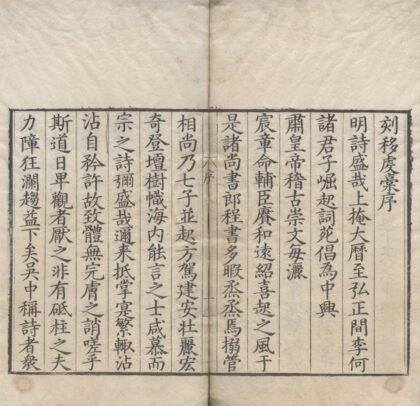 刻移虔藁序
明詩盛哉上掩大曆至弘正間李何
諸君子崛起詞苑倡為中興
肅皇帝稽古崇文毋灑
宸章命輔臣賡和遠紹喜起之風于
是諸尚書郎程書多暇烝烝馬搦管
相尚乃七子並起方駕建安壯麗宏
序
一
奇登壇樹幟海内能言之士咸慕而
宗之詩彌盛哉邇来抵掌寔繁輙沾
沾自矜許故致體無完膚之誚嗟乎
斯道日卑觀者厭之非有砥柱之夫
力障狂瀾趨益下矣吳中稱詩者衆